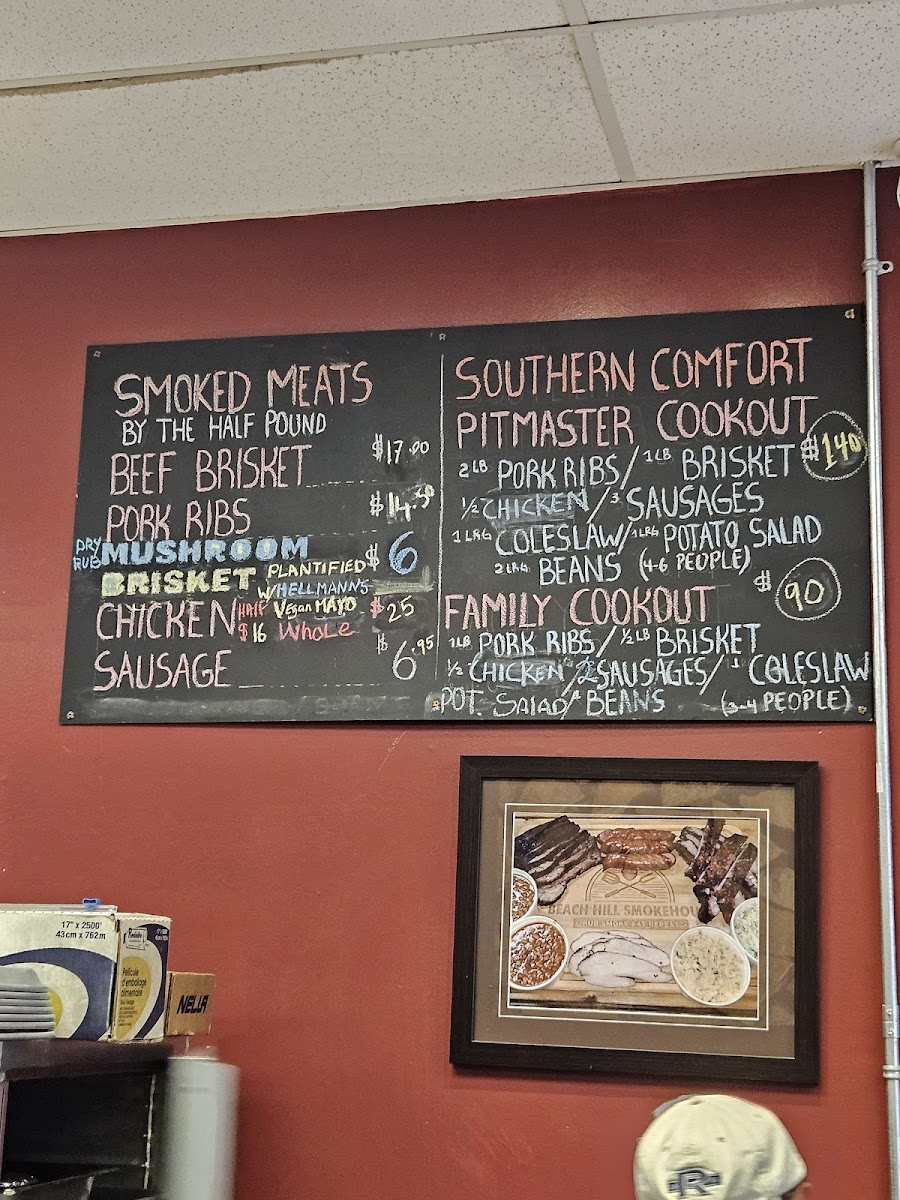 SMOKED MEATS
BY THE HALF POUND
BEEF BRISKET $17.00
PORK RIBS $14.50
DRY RUB MUSHROOM $6
BRISKET PLANTIFIED
W/HELLMANN'S
Vegan MAYO
CHICKEN HALF $16 WHOLE $25
SAUSAGE $6.95
SOUTHERN COMFORT
PITMASTER COOKOUT $140
2 LB PORK RIBS/ 1 LB BRISKET
1/2 CHICKEN / 3 SAUSAGES
1 LRG COLESLAW/ 1 LRG POTATO SALAD
2 LRG BEANS (4-6 PEOPLE)
FAMILY COOKOUT $90
1 LB PORK RIBS / 1/2 LB BRISKET
1/2 CHICKEN 2 SAUSAGES/ 1 COLESLAW
POT. SALAD/ BEANS (3-4 PEOPLE)
BEACH HILL SMOKEHOU
17" x 2500'
43cm x 762m
Pellicule
d'emballage
alimentaire
NELLA
R